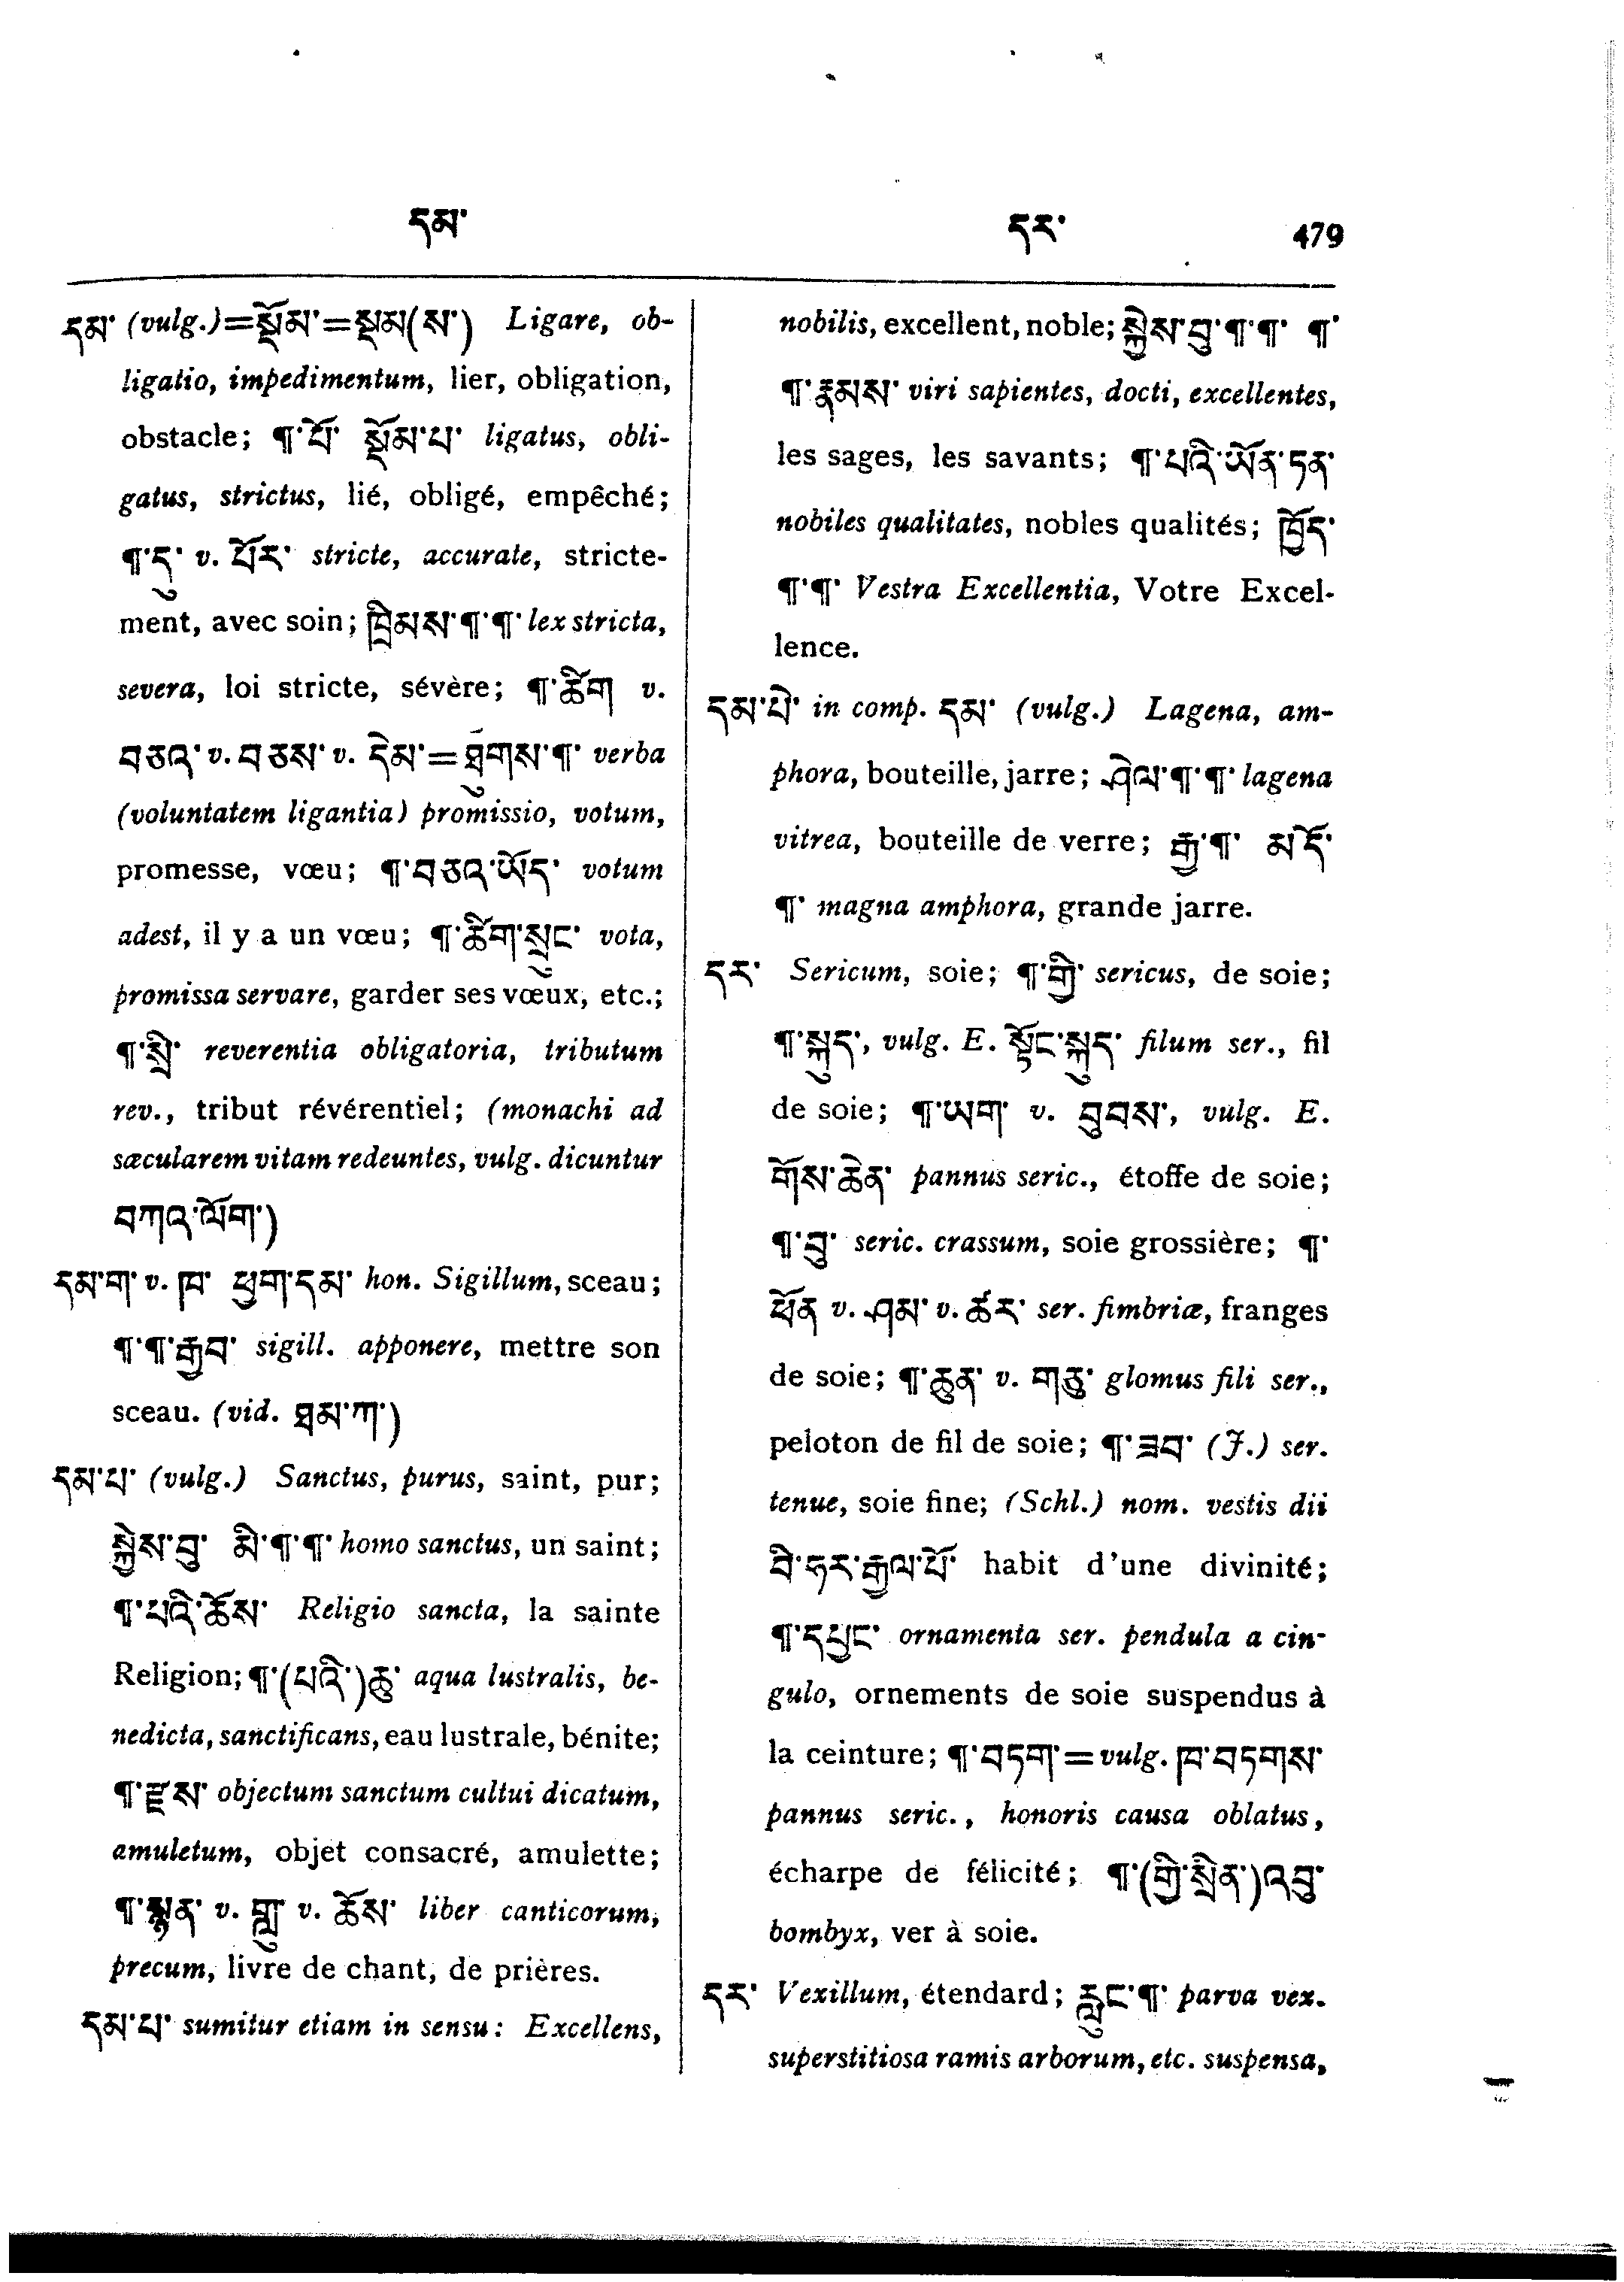 དམ་
དར་ 479
དམ་ (vulg.)=སྡོམ་=སྡམ(ས་) Ligare, ob-
ligatio, impedimentum, lier, obligation,
obstacle; ¶་པོ་ སྡོམ་པ་ ligatus, obli-
gatus, strictus, lié, obligé, empêché;
¶་དུ་ v. པོར་ stricte, accurate, stricte-
ment, avec soin; ཁྲིམས་¶་¶་ lex stricta,
severa, loi stricte, sévère; ¶་ཚིག v.
བཅའ་ v. བཅས་ v. དེམ་=ཐུགས་¶་ verba
(voluntatem ligantia) promissio, votum,
promesse, vœu; ¶་བཅའ་ཡོད་ votum
adest, il y a un vœu; ¶་ཚིག་སྲུང་ vota,
promissa servare, garder ses vœux, etc.;
¶་སྲི་ reverentia obligatoria, tributum
rev., tribut révérentiel; (monachi ad
sæcularem vitam redeuntes, vulg. dicuntur
བཀའ་ལོག་)
དམ་ག་ v. ཁ་ ཕྱག་དམ་ hon. Sigillum, sceau;
¶་¶་རྒྱབ་ sigill. apponere, mettre son
sceau. (vid. ཐམ་ཀ་)
དམ་པ་ (vulg.) Sanctus, purus, saint, pur;
སྐྱེས་བུ་ མི་¶་¶་ homo sanctus, un saint;
¶་པའི་ཆོས་ Religio sancta, la sainte
Religion; ¶་(པའི་)ཆུ་ aqua lustralis, be-
nedicta, sanctificans, eau lustrale, bénite;
¶་རྫས་ objectum sanctum cultui dicatum,
amuletum, objet consacré, amulette;
¶་སྙན་ v. གླུ v. ཆོས་ liber canticorum,
precum, livre de chant, de prières.
དམ་པ་ sumitur etiam in sensu: Excellens,
nobilis, excellent, noble; སྐྱེས་བུ་¶་¶་ ¶་
¶་རྣམས་ viri sapientes, docti, excellentes,
les sages, les savants; ¶་པའི་ཡོན་ཏན་
nobiles qualitates, nobles qualités; ཁྱོད་
¶་¶་ Vestra Excellentia, Votre Excel-
lence.
དམ་པེ་ in comp. དམ་ (vulg.) Lagena, am-
phora, bouteille, jarre; ཤེལ་¶་¶་ lagena
vitrea, bouteille de verre; རྒྱ་¶་ མདོ་
¶་ magna amphora, grande jarre.
དར་ Sericum, soie; ¶་གྱི་ sericus, de soie;
¶་སྐུད་, vulg. E. སྟོང་སྐུད་ filum ser., fil
de soie; ¶་ཡག་ v. བུབས་, vulg. E.
གོས་ཆེན་ pannus seric., étoffe de soie;
¶་བུ་ seric. crassum, soie grossière; ¶་
ཕོན v. ཤམ་ v. ཚར་ ser. fimbriæ, franges
de soie; ¶་ཆུན་ v. གཅུ་ glomus fili ser.,
peloton de fil de soie; ¶་ཟབ་ (J.) ser.
tenue, soie fine; (Schl.) nom. vestis dii
བི་ཧར་རྒྱལ་པོ་ habit d'une divinité;
¶་དཔྱང་ ornamenta ser. pendula a cin-
gulo, ornements de soie suspendus à
la ceinture; ¶་བཏག་=vulg. ཁ་བཏགས་
pannus seric., honoris causa oblatus,
écharpe de félicité; ¶་(གྱི་སྲིན་)འབུ་
bombyx, ver à soie.
དར་ Vexillum, étendard; རླུང་¶་ parva vex.
superstitiosa ramis arborum, etc. suspensa,